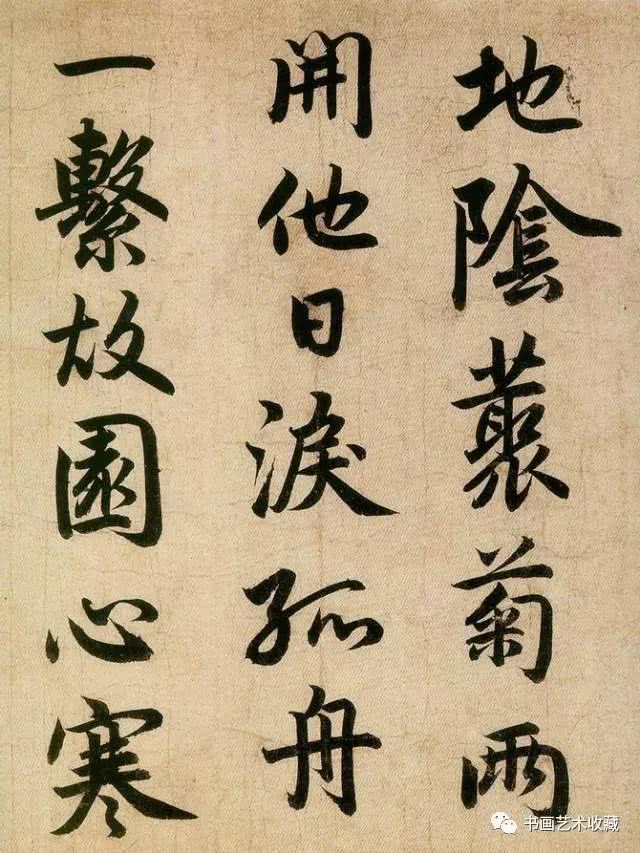 地陰藂菊兩
開他日淚孤舟
一繫故園心寒
书画艺术收藏